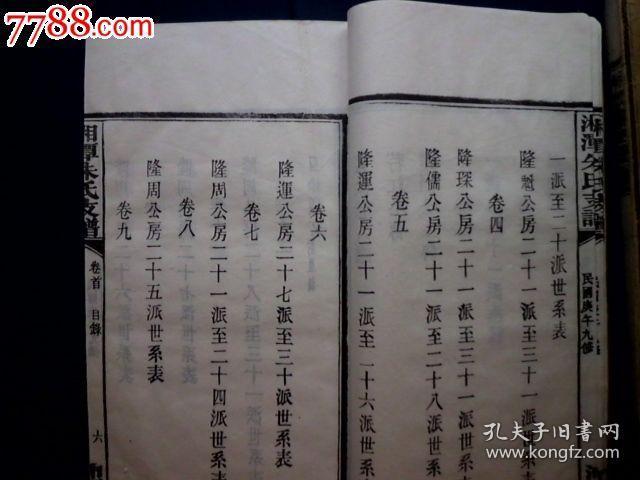 7788.com
湘潭朱氏支譜
民國庚午九修
一派至二十派世系表
隆魁公房二十一派至三十一派
卷四
隆琛公房二十一派至三十派世
隆儒公房二十一派至二十八派
卷五
隆運公房二十一派至二十六派世
卷六
隆運公房二十七派至三十派世系表
卷七
隆周公房二十一派至二十四派世系表
卷八
隆周公房二十五派世系表
卷九
湘潭朱氏支譜
卷首 目錄
六
孔夫子旧书网
www.kongfz.com